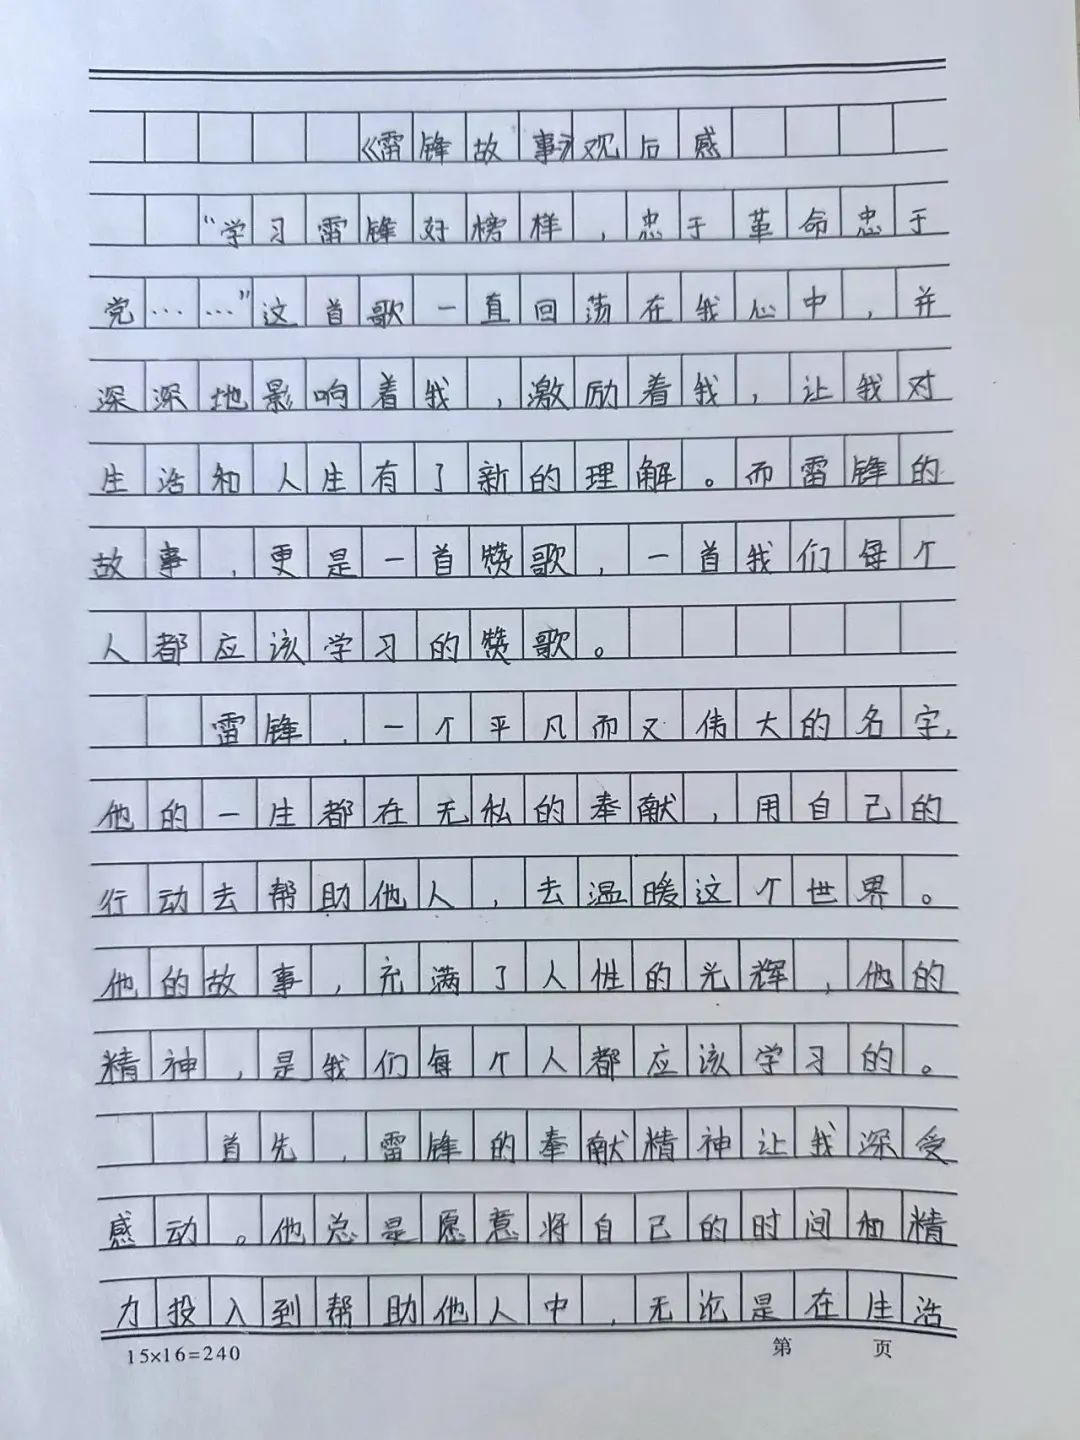 《雷锋故事》观后感
“学习雷锋好榜样，忠于革命忠于
党……”这首歌一直回荡在我心中，并
深深地影响着我，激励着我，让我对
生活和人生有了新的理解。而雷锋的
故事，更是一首赞歌，一首我们每个
人都应该学习的赞歌。
雷锋，一个平凡而又伟大的名字，
他的一生都在无私的奉献，用自己的
行动去帮助他人，去温暖这个世界。
他的故事，充满了人性的光辉，他的
精神，是我们每个人都应该学习的。
首先，雷锋的奉献精神让我深受
感动。他总是愿意将自己的时间和精
力投入到帮助他人中，无论是在生活
15×16=240 第 页